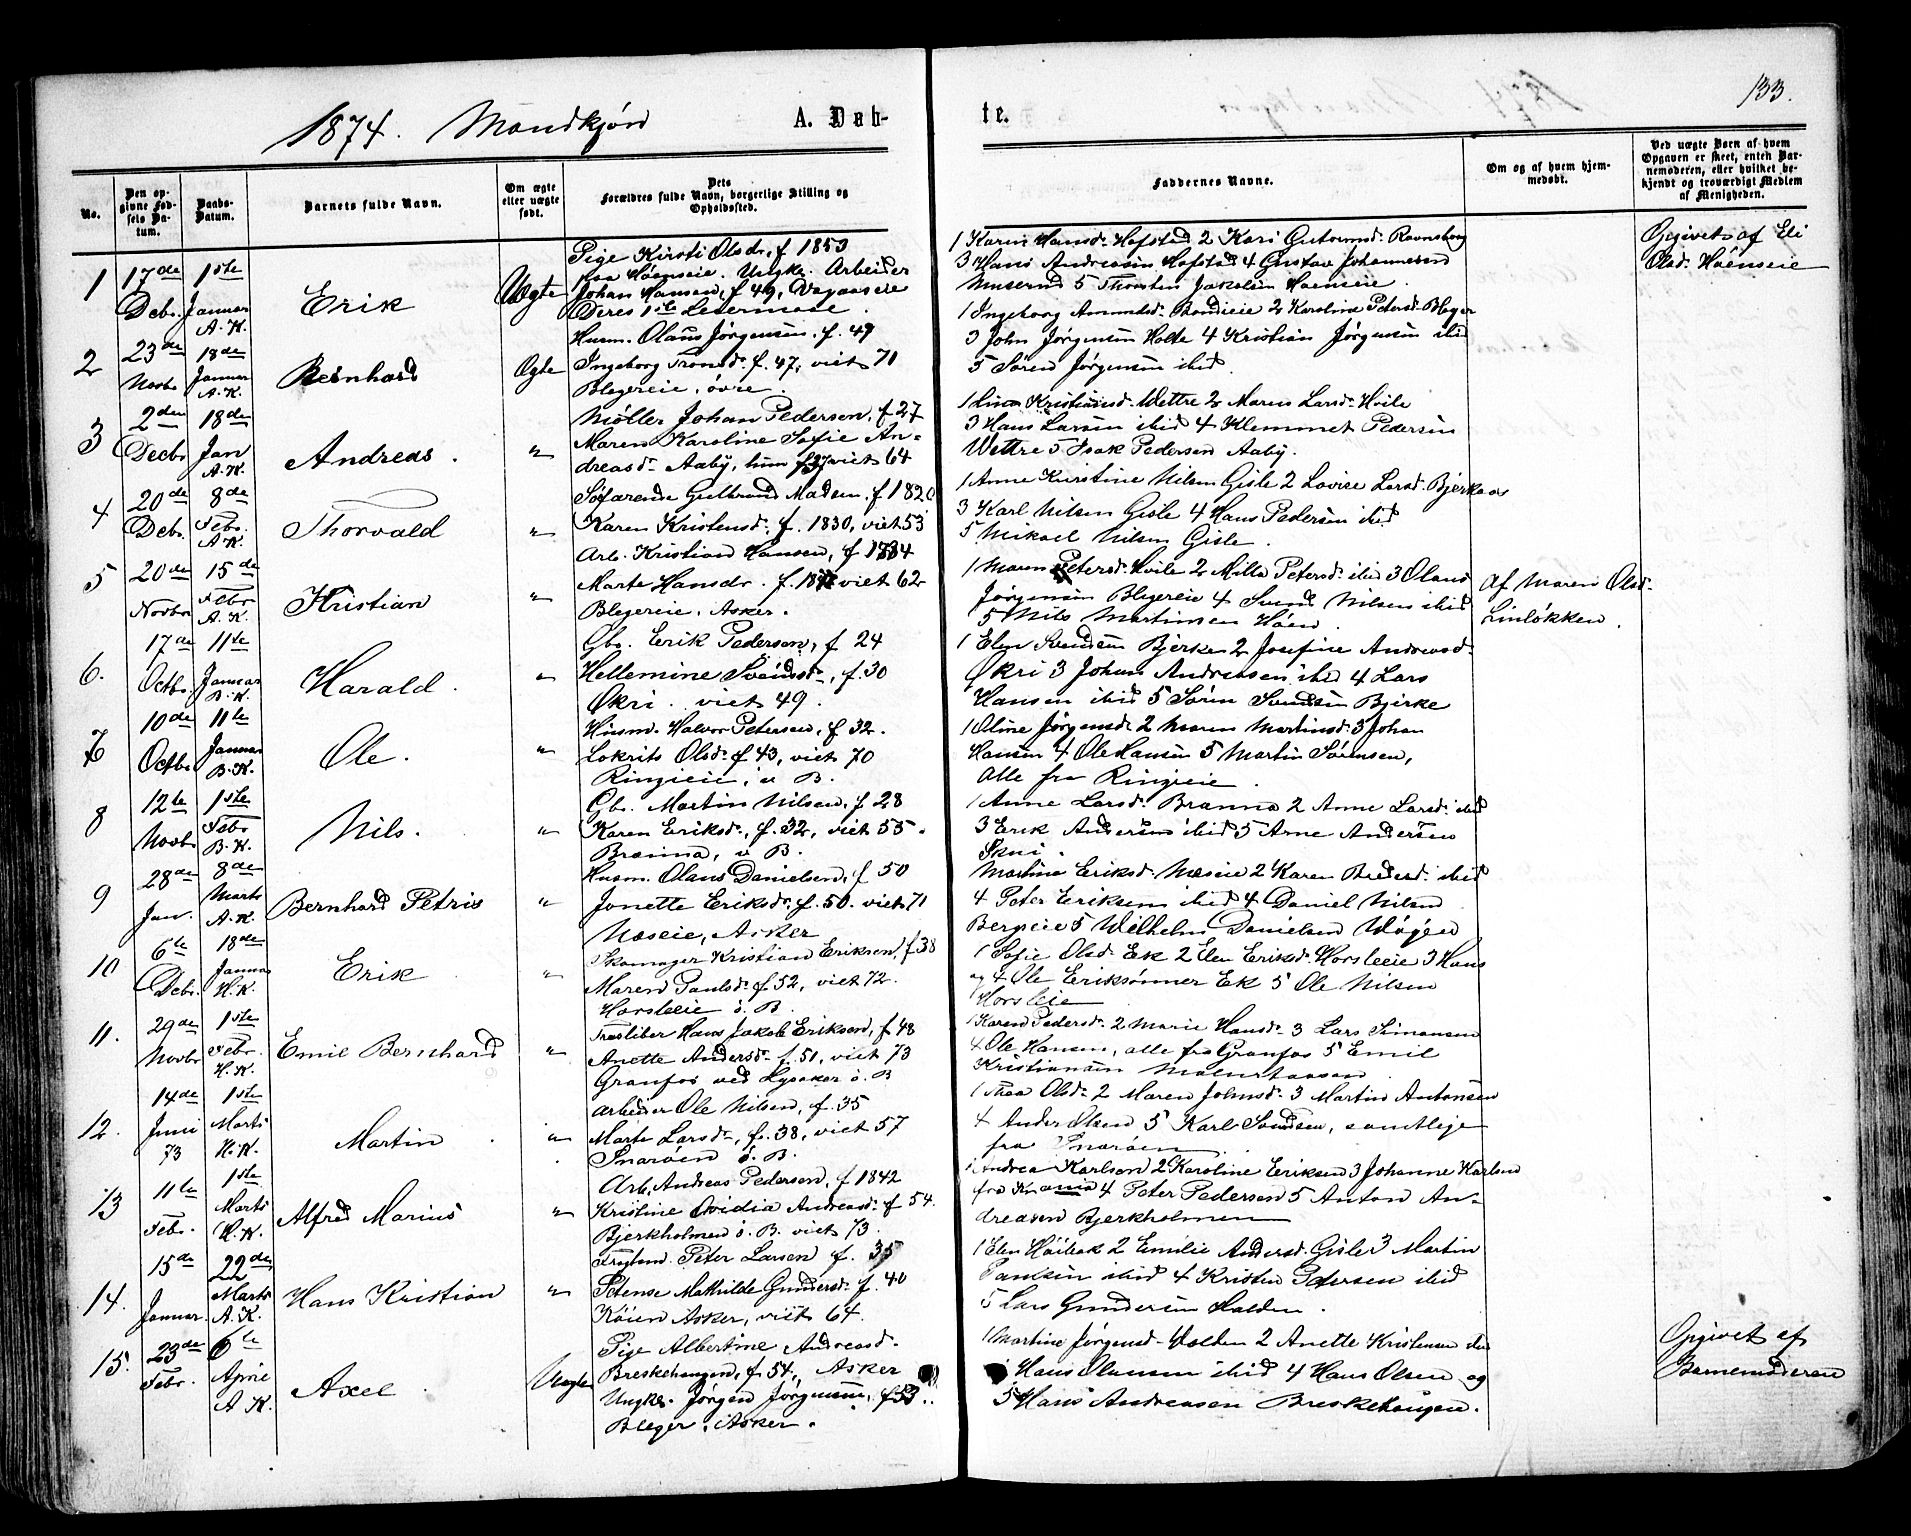 133.
1874. Mandkjøn A. Døb-
te.
No.
Den op-
givne Fød-
sels Da-
tum.
Daabs-
Datum.
Barnets fulde Navn.
Om ægte
eller uægte
født.
Dets
Forældres fulde Navn, borgerlige Stilling og
Opholdssted.
Faddernes Navne.
Om og af hvem hjem-
medøbt.
Ved uægte Børn af hvem
Opgaven er skeet, enten Bar-
nemoderen, eller hvilket be-
kjendt og troværdigt Medlem
af Menigheden.
1
17de
Decbr.
1ste
Januar
A.K.
Erik
Uægte
Pige Kirsti Olsdr. f 1853
paa Høenseie. Ungk. Arbeider
Johan Hansen, f 49,
Deres 1ste Leiermaal.
1 Karin Hansd. Hofstad 2 Kari Gutormsd. Ravnsborg
3 Hans Andreasen Hofstad 4 Gustav Johannesen
5 Thorsten Jakobsen Høenseie.
Opgivet af Eli
Olsd. Høenseie
2
23de
Novbr
18de
Januar
A.K.
Bernhard
Ægte
Husm. Olaus Jørgensen. f. 49
Ingeborg Tronsd. f. 47, viet 71
Blegereie, øvre.
1 Ingeborg Amundsd. Bondieie 2 Karoline Petersd. Bleger
3 John Jørgensen Holte 4 Kristian Jørgensen ibid
5 Søren Jørgensen ibid.
3
2den
Decbr
18de
Jan
A.K.
Andreas.
"
Møller Johan Pedersen, f 27
Maren Karoline Sofie An-
dreasd. Aaby, hun f 37 viet 64
1 Lina Kristiansd. Wettre 2 Maren Larsd. Hvile
3 Hans Larsen ibid 4 Klemmet Pedersen
Wettre 5 Isak Pedersen Aaby.
4
20de
Decbr.
8de
Febr.
A.K.
Thorvald
"
Søfarende Gulbrand Madsen. f 1820
Karen Kristensd. f. 1830, viet 53
1 Anne Kirstine Nilsen Gisle 2 Lovise Larsd. Bjerkaas
3 Karl Nilsen Gisle 4 Hans Pedersen ibid
5 Mikael Nilsen Gisle.
5
20de
Novbr
15de
Febr
A.K.
Kristian
"
Arb. Kristian Hansen, f 1834
Marte Hansdr. f. viet 62
Blegereie. Asker.
1 Maren Petersd. Hvile 2 Milla Petersd. ibid 3 Olaus
Jørgensen Blegereie 4 Svend Nilsen ibid
5 Nils Martinsen Høen.
Af Maren Olsd.
Linløkken.
6.
17de
Octbr.
11te
Januar
B.K.
Harald.
"
Gbr. Erik Pedersen, f 24
Hellemine Svendsd., f. 30
Økri. viet 49.
1 Elen Svendsen Bjerke 2 Josefine Andreasd.
Økri 3 Johan Andreassen ibid 4 Lars
Hansen ibid 5 Søren Svendsen Bjerke
7
10de
Octbr
11te
Januar
B.K.
Ole.
"
Husm. Halvor Petersen, f 32.
Lokrits Olsd. f 43, viet 70
Ringieie, v B.
1 Oline Jørgensd. 2 Maren Martinsd. 3 Johan
Hansen 4 Ole Hansen 5 Martin Sørensen,
Alle fra Ringieie.
8
12te
Novbr
1ste
Febr
B.K.
Nils.
"
Gbr. Martin Nilsen, f 28
Karen Eriksd., f. 32, viet 55.
Brænna, v B.
1 Anne Larsd. Brænna 2 Anne Larsd. ibid
3 Erik Andersen ibid 5 Arne Andersen
Skui.
9
28de
Jan.
8de
Marts
A.K.
Bernhard Petris
"
Husm. Olaus Danielsen, f 50
Jonette Eriksdr. f. 50. viet 71
Næseie, Asker
Martine Eriksd. Næseie 2 Karen ibid
4 Peter Eriksen ibid 4 Daniel Nilsen
Bergseie 5 Wilhelm Danielsen Wøyen
10
6te
Decbr.
18de
Januar
H.K.
Erik
"
Skomager Kristian Eriksen, f. 38
Maren Paulsd. f 52, viet 72.
Horsleeie ö. B.
1 Sofie Olsd. Ek 2 Elen Eriksd. Horsleeie 3 Hans
og 4 Ole Erikssønner Ek 5 Ole Nilsen
Horsleie
11.
29de
Novbr
1ste
Febr.
H.K.
Emil Bernhard
"
Træsliber Hans Jakob Eriksen, f 48
Anette Andersd. f. 51, viet 73
Granfos ved Lysaker ö. B
1 Karen Pedersd. 2 Marie Hansd. 3 Lars Simensen
4 Ole Hansen, alle fra Granfos 5 Emil
Kristiansen
12.
14de
Juni
73
1ste
Marts
H.K.
Martin
"
Arbeider Ole Nilsen, f. 35
Marte Larsd., f. 38, viet 57
Snarøen ö. B.
1 Thea Olsd. 2 Maren Johnsd. 3 Martin Antonsen
4 Anders Olsen 5 Karl Svendsen, samtlige
fra Snarøen
13
11te
Febr.
1ste
Marts
H.K.
Alfred Marius
"
Arb. Andreas Pedersen, f 1842
Kristine Ovidia Andreasd. f 54.
Bjerkholmen ö. B. viet 73.
1 Andrea Karlsen 2 Karoline Eriksen 3 Johanne Karlsen
fra Krania 4 Peter Pedersen 5 Anton An-
dreasen Bjerkholmen
14.
15de
Januar.
22de
Marts
A.K.
Hans Kristian
"
Peter Larsen f. 35
Petense Mathilde Gundersd. f. 40
Køien Asker, viet 64.
1 Elen Høibak 2 Emilie Andersd. Gisle 3 Martin
Paulsen ibid 4 Kristen Petersen ibid
5 Lars Gundersen Halden.
15.
23de
Febr.
6te
April
A K.
Axel.
Uægte
Pige Albertine Andreasd.
Breskehaugen, f. 54., Asker
Ungk. Jørgen Jørgensen, f 53..
Bleger. Asker.
1 Martine Jørgensd. Valden 2 Anette Kristensen ibid
Hans Olausen ibid 4 Hans Olsen og
5 Hans Andreasen Breskehaugen.
Opgivet af
Barnemoderen